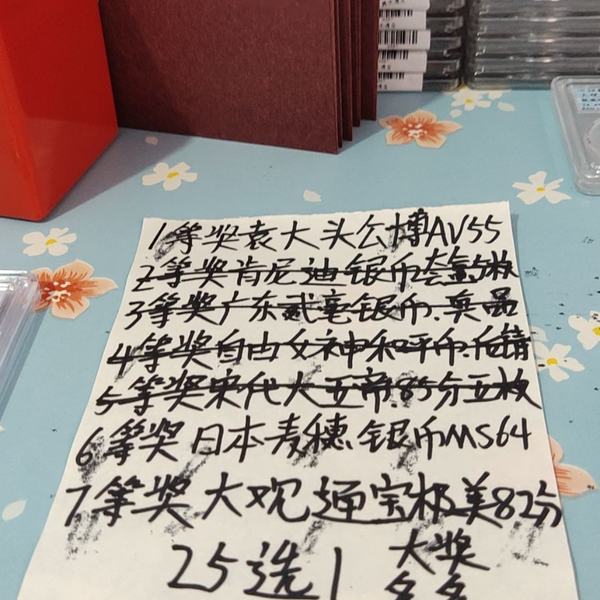 1等奖袁大头公博AV55
2等奖肯尼迪银币大全5枚
3等奖广东贰毫银币.真品
4等奖自由女神和平币.
5等奖宋代大五帝.85分五枚
6等奖日本麦穗.银币MS64
7等奖大观通宝极美82分
25选1 大奖
多多